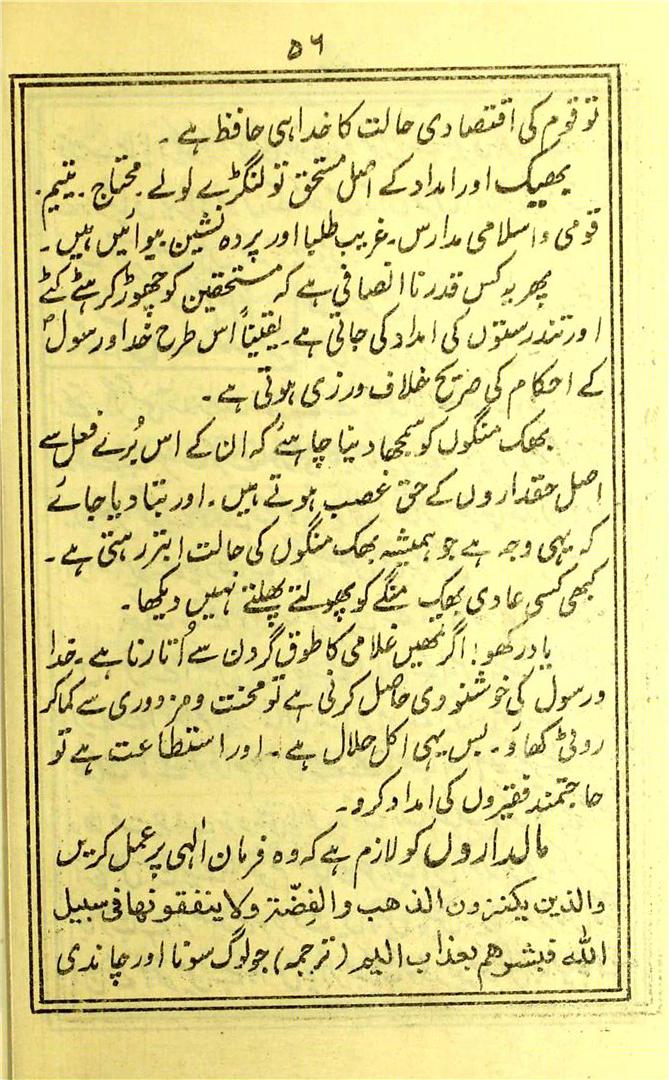 ۵۶
تو قوم کی اقتصادی حالت کا خدا ہی حافظ ہے۔
بھیک اور امداد کے اصل مستحق تو لنگڑے لولے۔ محتاج۔ یتیم۔
قومی و اسلامی مدارس۔ غریب طلبا اور پردہ نشین بیوائیں ہیں۔
پھر یہ کس قدر نا انصافی ہے کہ مستحقین کو چھوڑ کر ہٹے کٹے
اور تندرستوں کی امداد کی جاتی ہے۔ یقیناً اس طرح خدا و رسولؐ
کے احکام کی صریح خلاف ورزی ہوتی ہے۔
بھک منگوں کو سمجھا دینا چاہئے کہ ان کے اس بُرے فعل سے
اصل حقداروں کے حق غصب ہوتے ہیں۔ اور بتا دیا جائے
کہ یہی وجہ ہے جو ہمیشہ بھک منگوں کی حالت ابتر رہتی ہے۔
کبھی کسی عادی بھک منگے کو پھولتے پھلتے نہیں دیکھا۔
یاد رکھو! اگر تمھیں غلامی کا طوق گردن سے اُتارنا ہے۔ خدا
و رسول کی خوشنودی حاصل کرنی ہے تو محنت و مزدوری سے کما کر
روٹی کھاؤ۔ بس یہی اکل حلال ہے۔ اور استطاعت ہے تو
حاجتمند فقیروں کی امداد کرو۔
مالداروں کو لازم ہے کہ وہ فرمان الٰہی پر عمل کریں
والذین یکنزون الذھب والفِضّۃ ولا ینفقونھا فی سبیل
اللّٰہ فبشرھم بعذاب الیم (ترجمہ) جو لوگ سونا اور چاندی